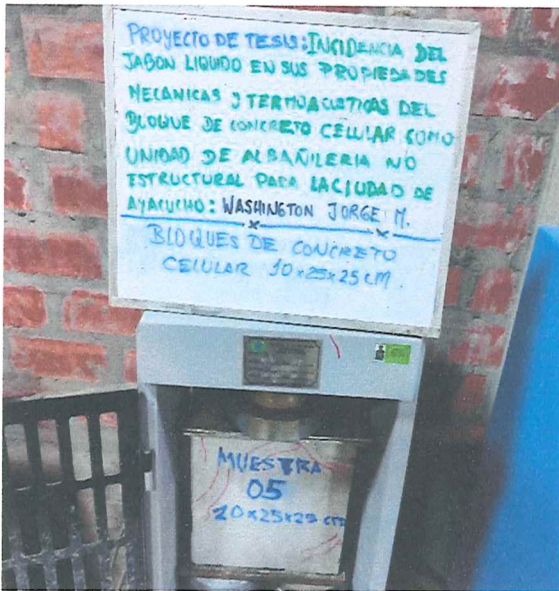 PROYECTO DE TESIS: INCIDENCIA DEL
JABON LIQUIDO EN SUS PROPIEDADES
MECANICAS Y TERMOACUSTICAS DEL
BLOQUE DE CONCRETO CELULAR COMO
UNIDAD DE ALBAÑILERIA NO
ESTRUCTURAL PARA LA CIUDAD DE
AYACUCHO: WASHINGTON JORGE M.
BLOQUES DE CONCRETO
CELULAR 10x25x25 CM
MUESTRA
05
10x25x25 cm